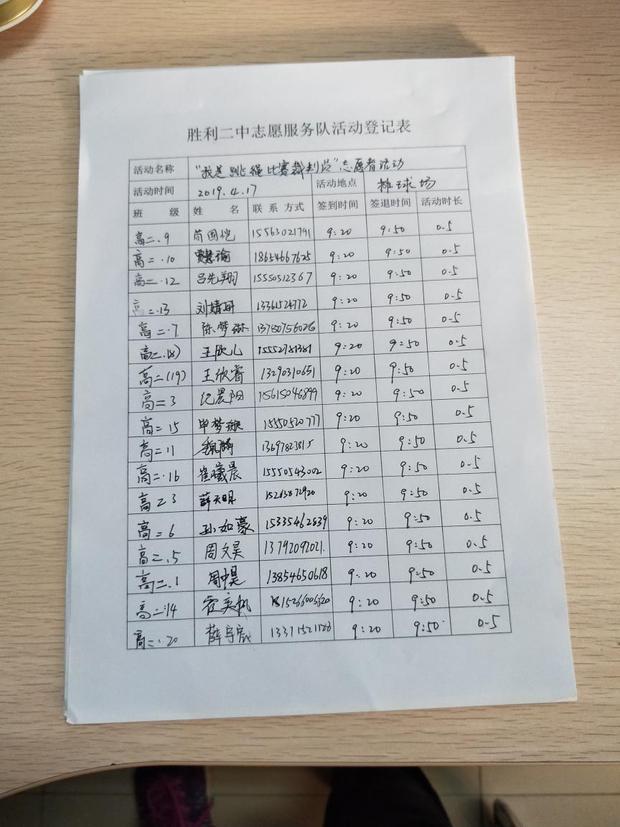 胜利二中志愿服务队活动登记表
活动名称 "我是跳绳比赛裁判员"志愿者活动
活动时间 2019.4.17 活动地点 排球场
班 级 姓 名 联系方式 签到时间 签退时间 活动时长
高二.9 9:20 9:50 0.5
高二.10 18654667625 9:20 9:50 0.5
高二.12 吕先翔 15550512367 9:20 9:50 0.5
高二.13 刘婧研 9:20 9:50 0.5
高二.7 陈梦 9:20 9:50 0.5
高二.(18) 王欣儿 9:20 9:50 0.5
高二(19) 王欣睿 13290310651 9:20 9:50 0.5
高二3 纪晨阳 15615046899 9:20 9:50 0.5
高二15 申梦璇 15550520777 9:20 9:50 0.5
高二11 9:20 9:50 0.5
高二.16 崔曦晨 15550543002 9:20 9:50 0.5
高二3 薛天明 9:20 9:50 0.5
高二6 孙如豪 15335462839 9:20 9:50 0.5
高二.5 周文昊 13792092021. 9:20 9:50 0.5
高二.1 周中昊 13854650618 9:20 9:50 0.5
高二.14 9:20 9:50 0.5
高二.20 9:20 9:50 0.5